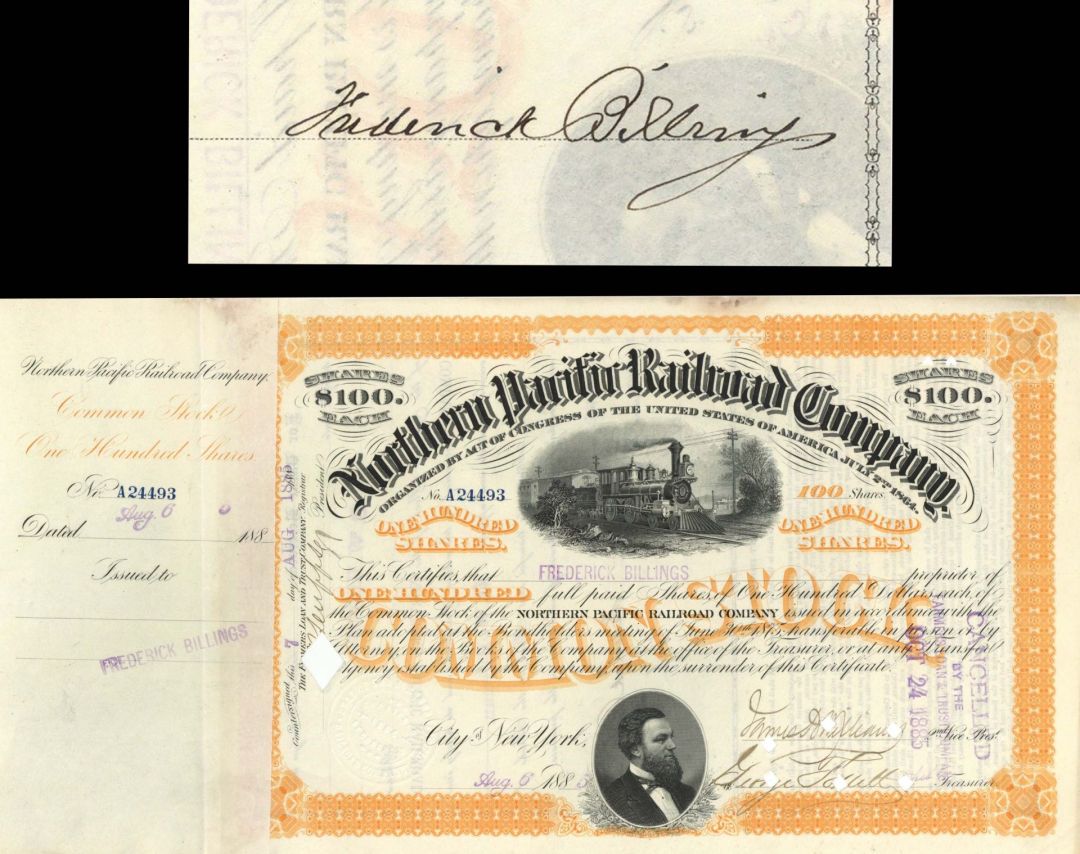 Frederick Billings
Northern Pacific Railroad Company.
Common Stock
One Hundred Shares
No. A24493
Aug. 6
Dated 188
Issued to
FREDERICK BILLINGS
Countersigned this 7 day of AUG 1885
THE FARMERS LOAN AND TRUST COMPANY Registrar
President
SHARES
$100.
EACH
SHARES
$100.
EACH
Northern Pacific Railroad Company
ORGANIZED BY ACT OF CONGRESS OF THE UNITED STATES OF AMERICA JULY 2ND 1864.
No. A24493
100 Shares.
ONE HUNDRED
SHARES.
ONE HUNDRED
SHARES.
This Certifies, that FREDERICK BILLINGS proprietor of
ONE HUNDRED full paid Shares, of One Hundred Dollars each, of
the Common Stock of the NORTHERN PACIFIC RAILROAD COMPANY issued in accordance with the
Plan adopted at the Bondholders meeting of June 30th 1875, transferable in person or by
Attorney, on the Books of the Company at the office of the Treasurer, or at any Transfer
Agency established by the Company, upon the surrender of this Certificate.
COMMON STOCK
CANCELLED
BY THE
FARMERS LOAN & TRUST COMPANY
OCT 24 1885
City of New York,
Aug. 6 1885
James B Williams
Vice Prest
George
Treasurer